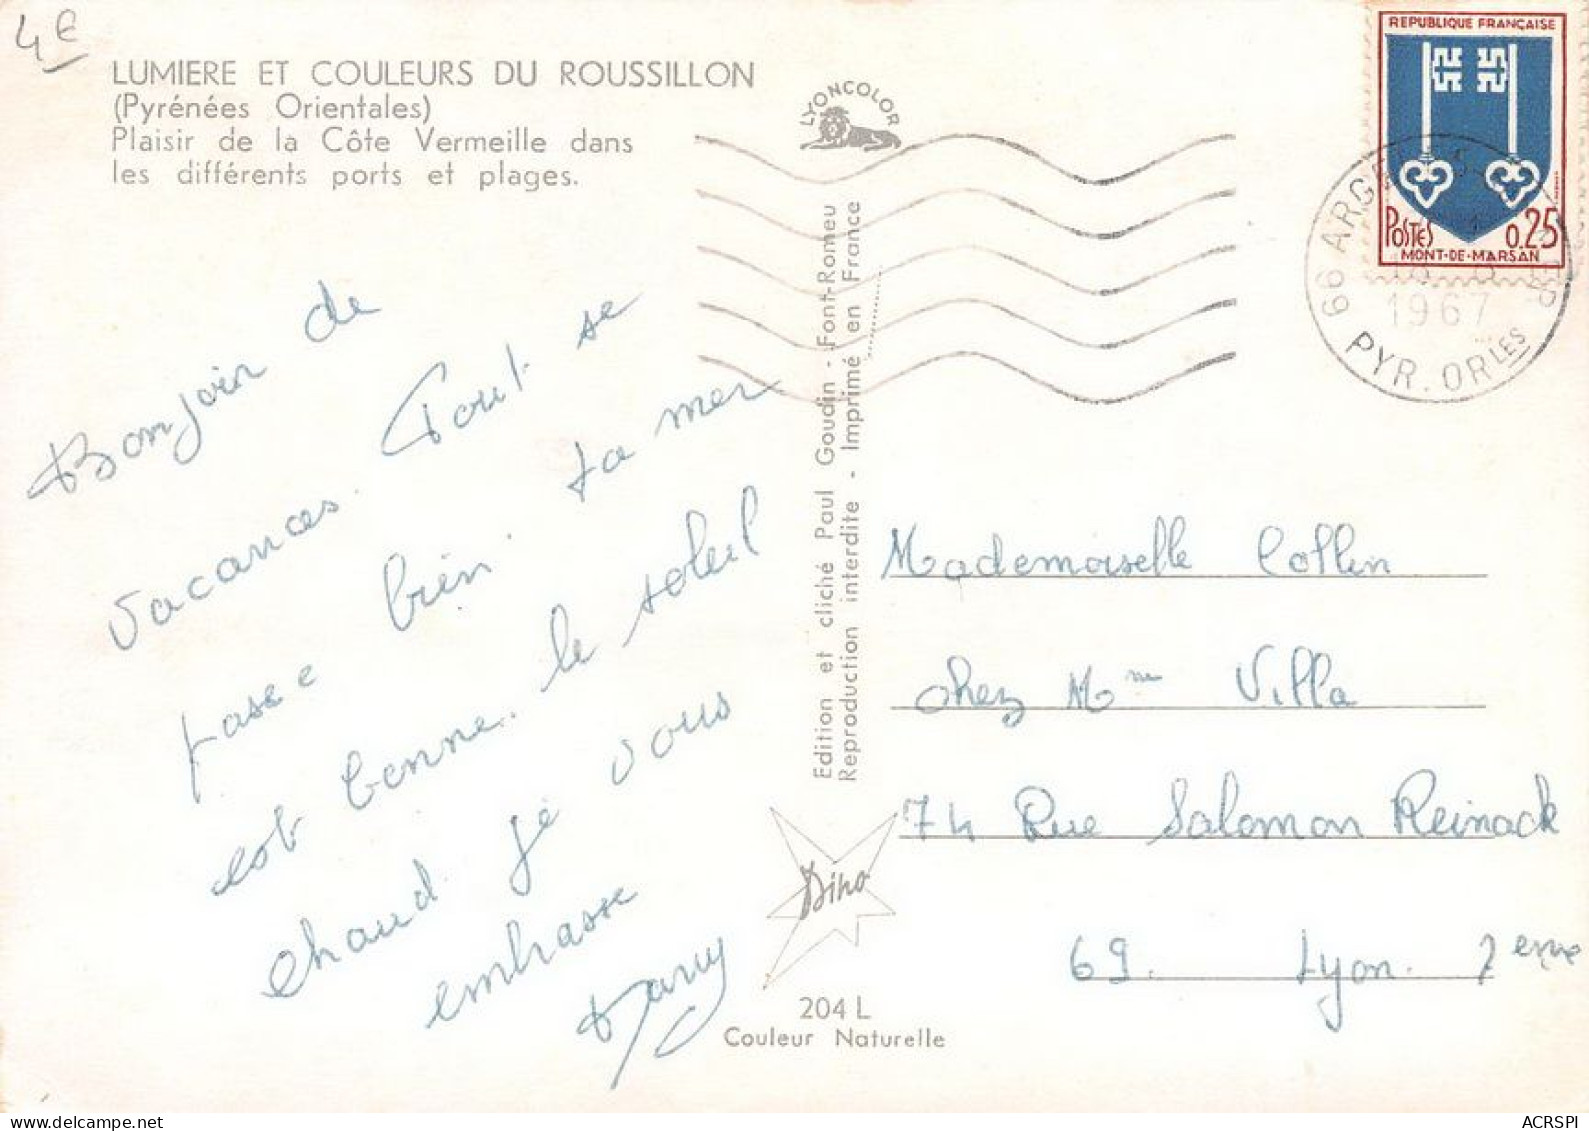 4€
LUMIERE ET COULEURS DU ROUSSILLON
(Pyrénées Orientales)
Plaisir de la Côte Vermeille dans
les différents ports et plages.
LYONCOLOR
REPUBLIQUE FRANÇAISE
POSTES 0.25
MONT-DE-MARSAN
66 ARGE
1967
PYR. ORLES
Bonjoin de
vacances. Tout se
passe bien. La mer
est bonne. le soleil
chaud je vous
embrasse
Dany
Edition et cliché Paul Goudin - Font-Romeu
Reproduction interdite - Imprimé en France
Mademoiselle Collin
chez Mme Villa
74 Rue Salomon Reinack
69. Lyon. 7eme
Dino
204 L
Couleur Naturelle
ACRSPI